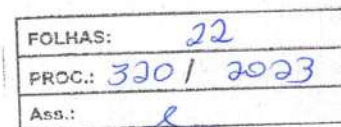 FOLHAS: 22
PROC.: 320 / 2023
Ass.: